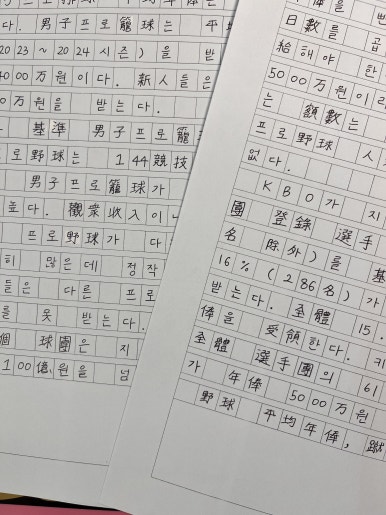 다. 男子 프로 籠球는 平
2023~2024 시즌)을 받
400万원이다. 新人들은
万원을 받는다.
基準 男子 프로 籠
로 野球는 144競技
男子 프로 籠球가
높다. 觀衆收入이나
프로 野球가 다
히 많은데 정작
들은 다른 프로
를 못 받는다.
個 球團은 지
100億원을 넘
日數를 곱
給해야 한
5000万원이라
는 額數는
프로野球 人
없다.
KBO가 지
團 登錄 選手
名 除外)를 基
16%(286名)가
받는다. 全體 15.
俸을 受領한다. 키
全體 選手團의 61
가 年俸 5000万원
野球 平均年俸, 蹴